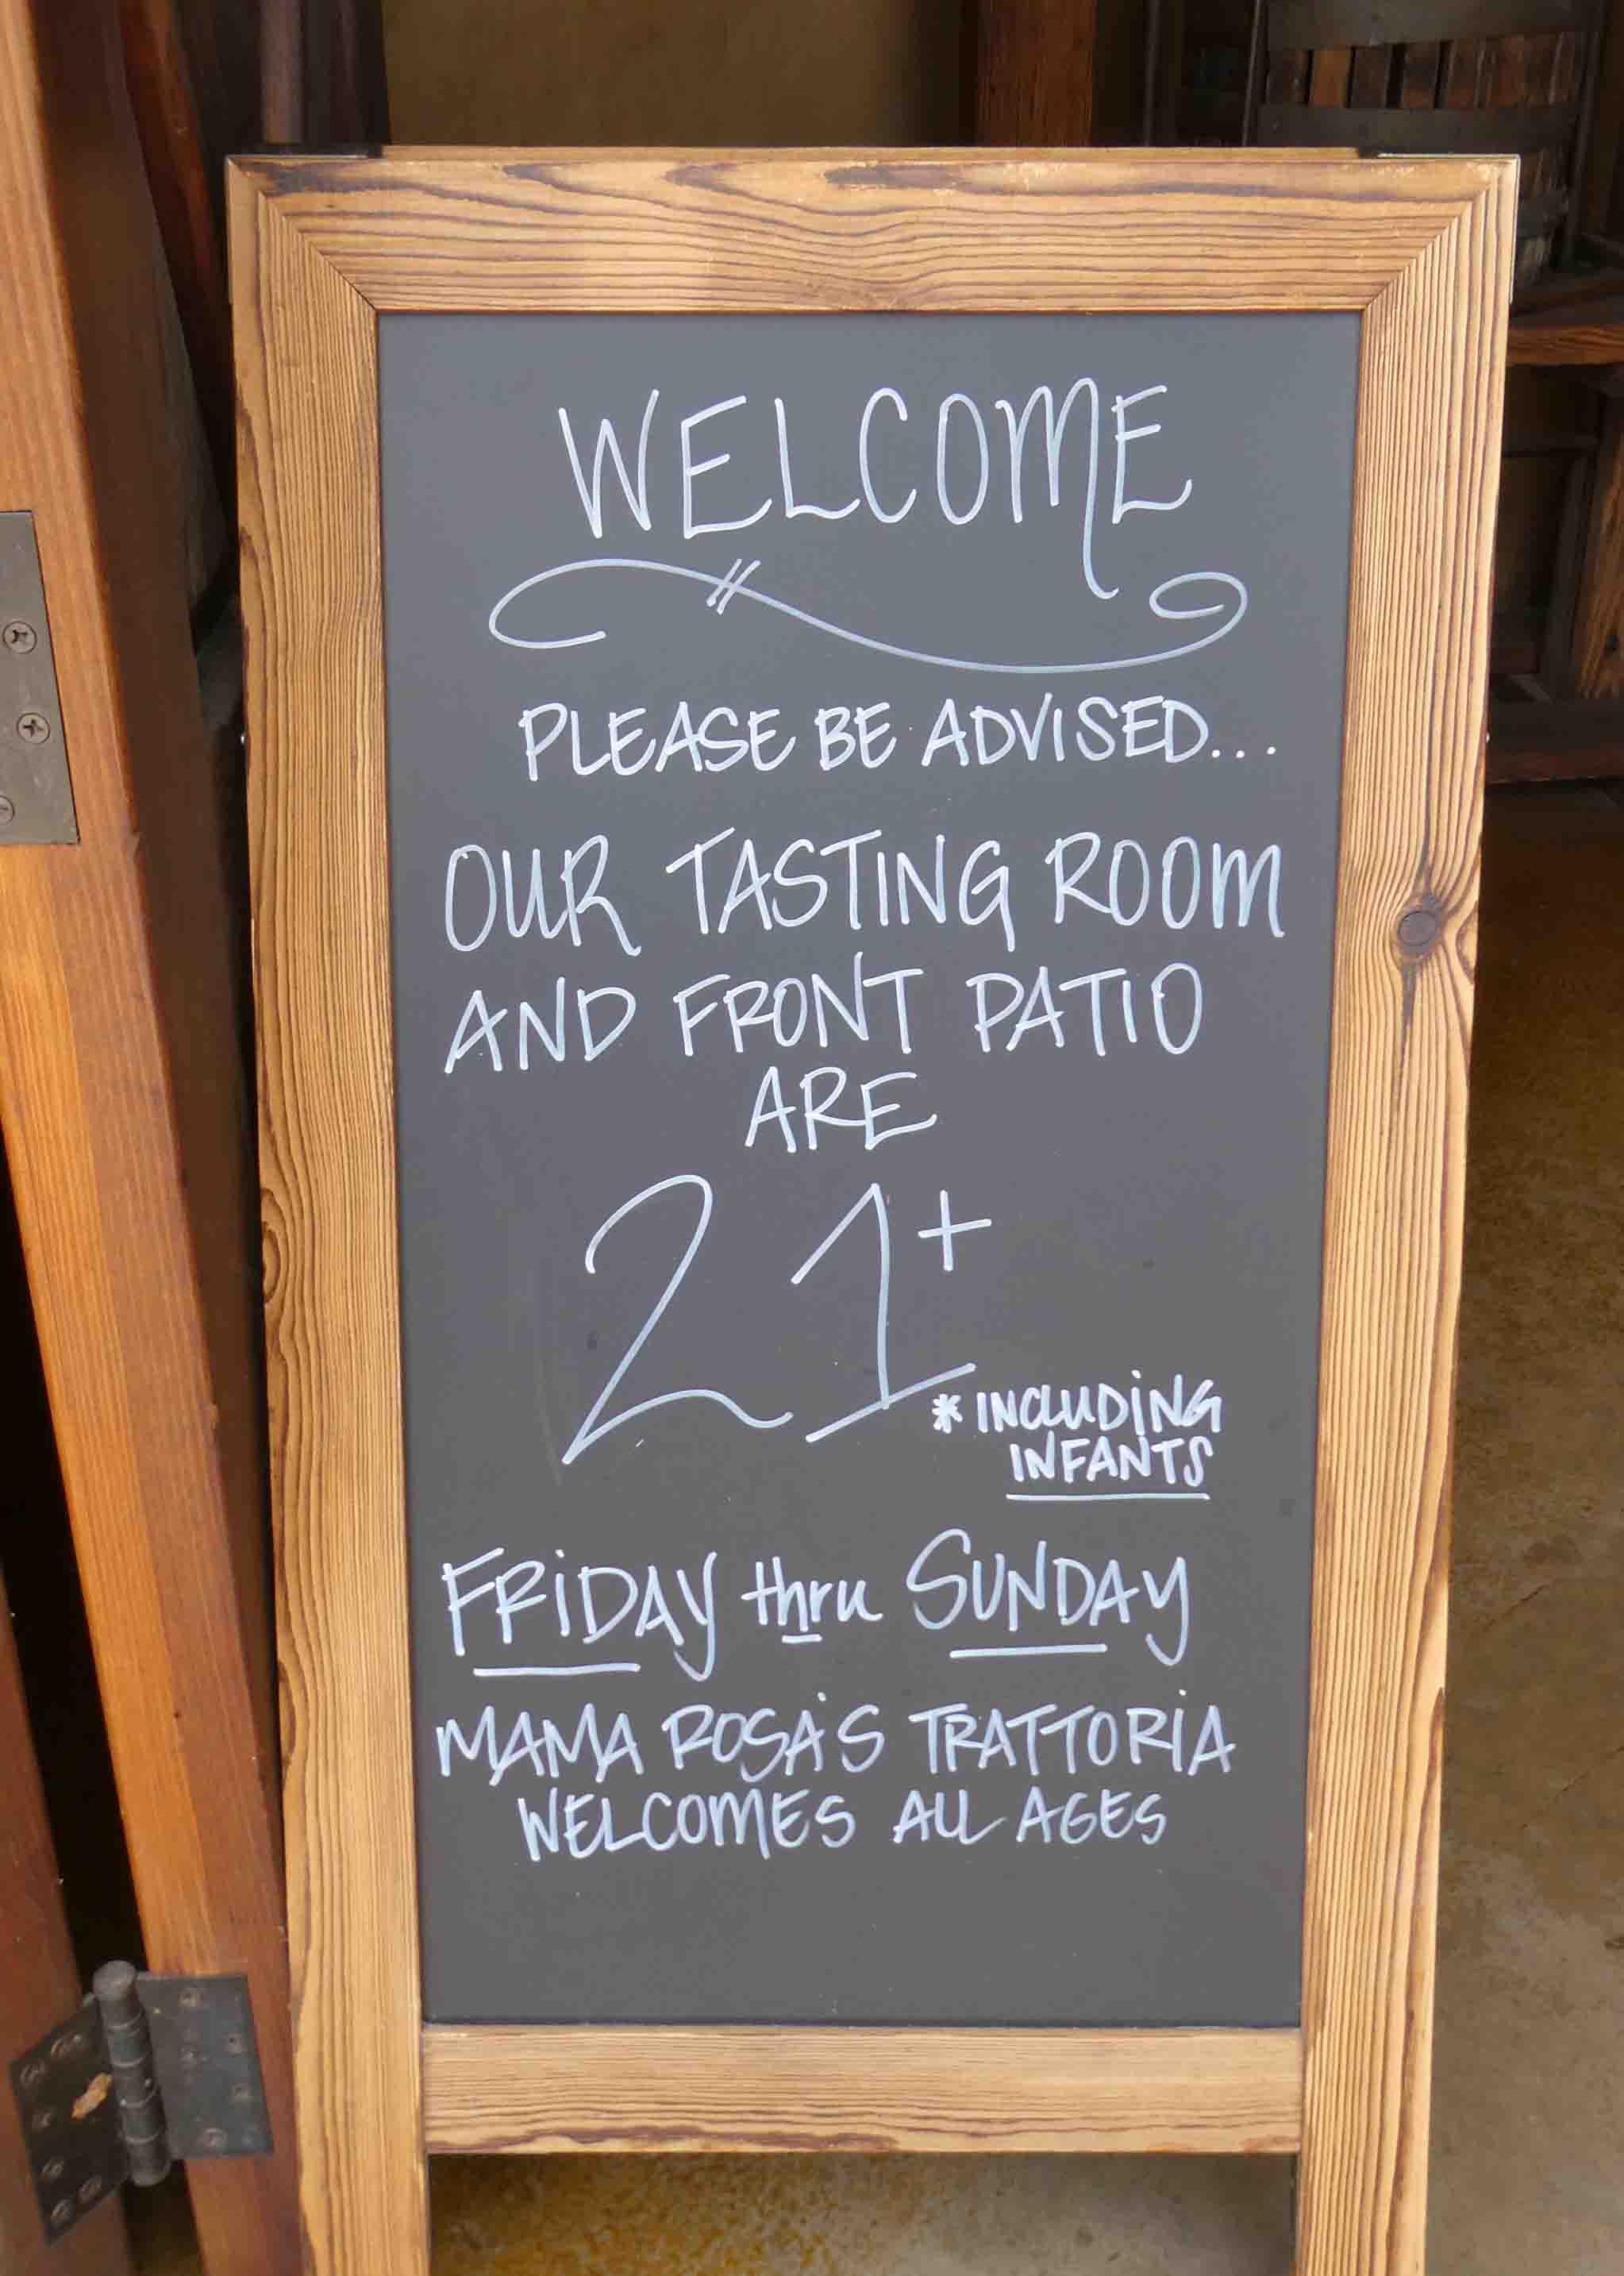 WELCOME
PLEASE BE ADVISED...
OUR TASTING ROOM
AND FRONT PATIO
ARE
21+
* INCLUDING
INFANTS
FRIDAY thru SUNDAY
MAMA ROSA'S TRATTORIA
WELCOMES ALL AGES